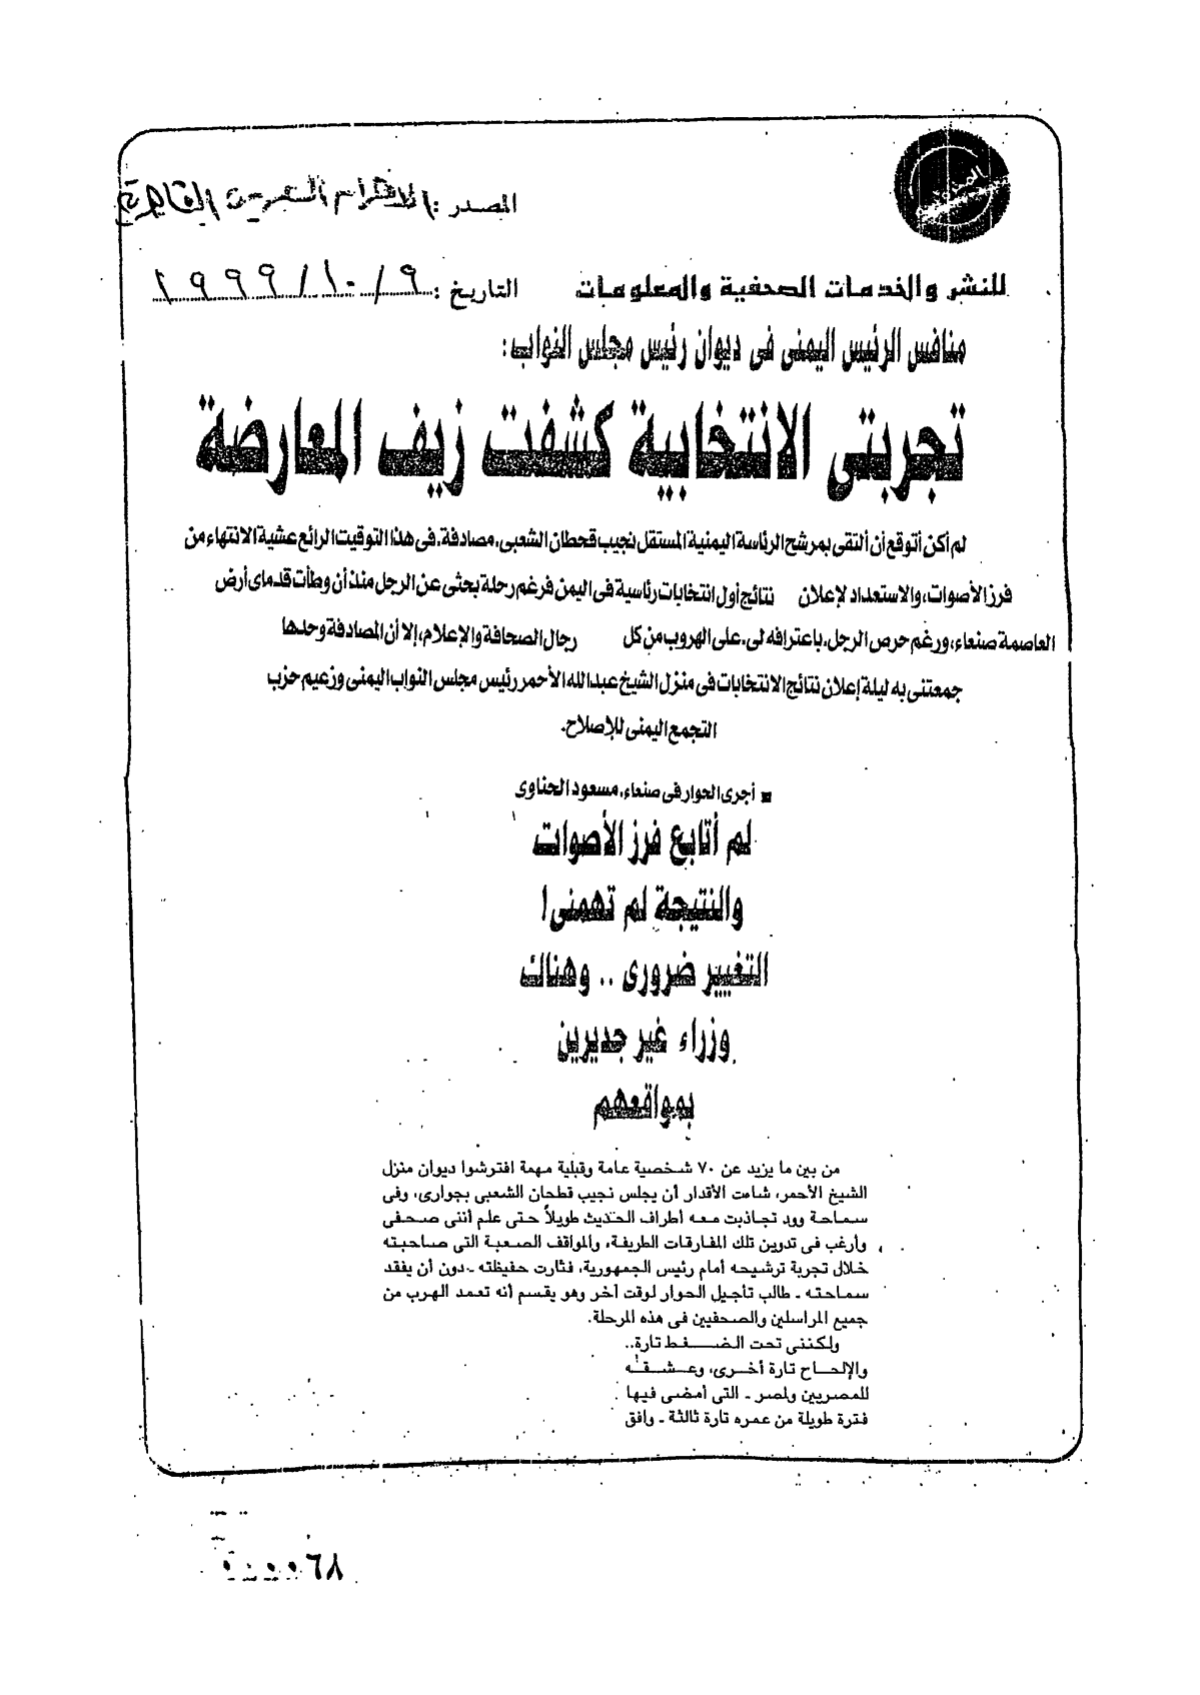 المصدر : الأهرام العربى القاهرة
للنشر والخدمات الصحفية والمعلومات
التاريخ : ٩ / ١٠ / ١٩٩٩
منافس الرئيس اليمنى فى ديوان رئيس مجلس النواب :
تجربتى الانتخابية كشفت زيف المعارضة
لم أكن أتوقع أن ألتقى بمرشح الرئاسة اليمنية المستقل نجيب قحطان الشعبى، مصادفة، فى هذا التوقيت الرائع عشية الانتهاء من
فرز الأصوات، والاستعداد لإعلان نتائج أول انتخابات رئاسية فى اليمن فرغم رحلة بحثى عن الرجل منذ أن وطأت قدماى أرض
العاصمة صنعاء، ورغم حرص الرجل، باعترافه لى، على الهروب من كل رجال الصحافة والإعلام، إلا أن المصادفة وحدها
جمعتنى به ليلة إعلان نتائج الانتخابات فى منزل الشيخ عبدالله الأحمر رئيس مجلس النواب اليمنى وزعيم حزب
التجمع اليمنى للإصلاح.
■ أجرى الحوار فى صنعاء، مسعود الحناوى
لم أتابع فرز الأصوات
والنتيجة لم تهمنى!
التغيير ضرورى .. وهناك
وزراء غير جديرين
بمواقعهم
من بين ما يزيد عن ٧٠ شخصية عامة وقبلية مهمة افترشوا ديوان منزل
الشيخ الأحمر، شاءت الأقدار أن يجلس نجيب قطحان الشعبى بجوارى، وفى
سماحة وود تجاذبت معه أطراف الحديث طويلاً حتى علم أننى صحفى
وأرغب فى تدوين تلك المفارقات الطريفة، والمواقف الصعبة التى صاحبته
خلال تجربة ترشيحه أمام رئيس الجمهورية، فثارت حفيظته - دون أن يفقد
سماحته - طالب تأجيل الحوار لوقت آخر وهو يقسم أنه تعمد الهرب من
جميع المراسلين والصحفيين فى هذه المرحلة.
ولكننى تحت الضغط تارة..
والإلحاح تارة أخرى، وعشقه
للمصريين ولمصر - التى أمضى فيها
فترة طويلة من عمره تارة ثالثة - وافق
٦٨